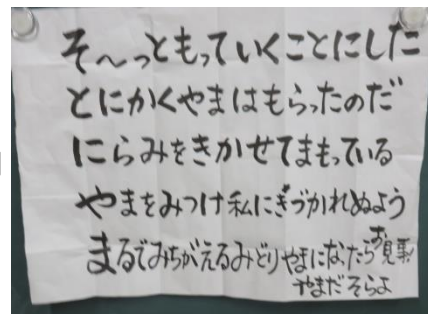 そ～っともっていくことにした
とにかくやまはもらったのだ
にらみをきかせてまもっている
やまをみつけ私にきづかれぬよう
まるでみちがえるみどりやまになったらお見事!
やまだそらよ